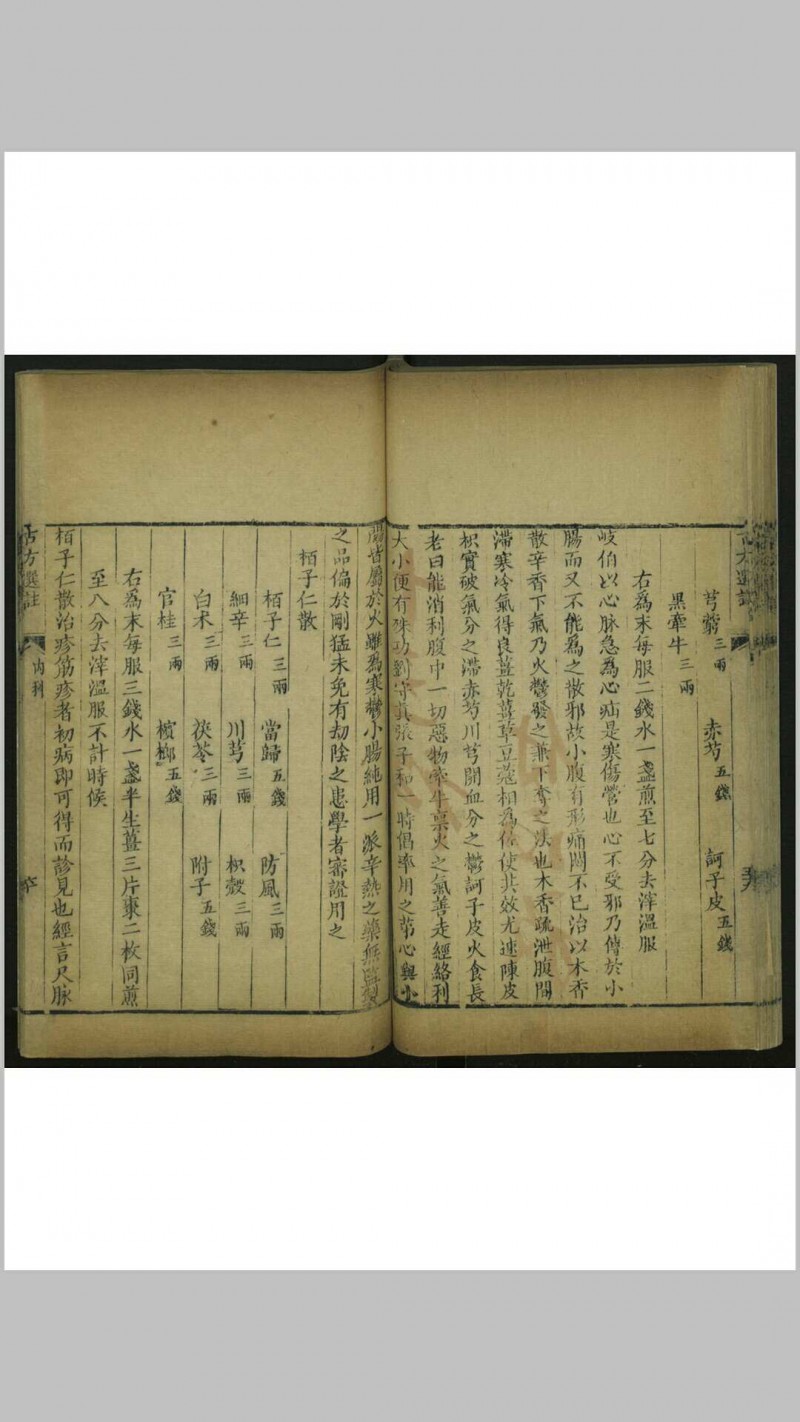 古方選註
芎藭三兩 赤芍五錢 訶子皮五錢
黑牽牛三兩
右為末每服二錢水一盞煎至七分去滓溫服
岐伯以心脉急為心疝是寒傷營也心不受邪乃傳於小
腸而又不能為之散邪故小腹有形痛悶不已治以木香
散辛香下氣乃火鬱發之兼下奪之法也木香疏泄腹間
滯寒冷氣得良薑乾薑草豆蔻相為佐使其效尤速陳皮
枳實破氣分之滯赤芍川芎開血分之鬱訶子皮火食長
老曰能消利腹中一切惡物牽牛稟火之氣善走經絡利
大小便有殊功劉守真張子和一時倡率用之第心與小
腸皆屬於火雖為寒鬱小腸純用一派辛熱之藥無監製
之品偏於剛猛未免有劫陰之患學者審證用之
栢子仁散
栢子仁三兩 當歸五錢 防風三兩
細辛三兩 川芎三兩 枳殼三兩
白术三兩 茯苓三兩 附子五錢
官桂三兩 檳榔五錢
右為末每服三錢水一盞半生薑三片棗二枚同煎
至八分去滓溫服不計時候
栢子仁散治疹筋疹者初病即可得而診見也經言尺脉
古方選註 內科